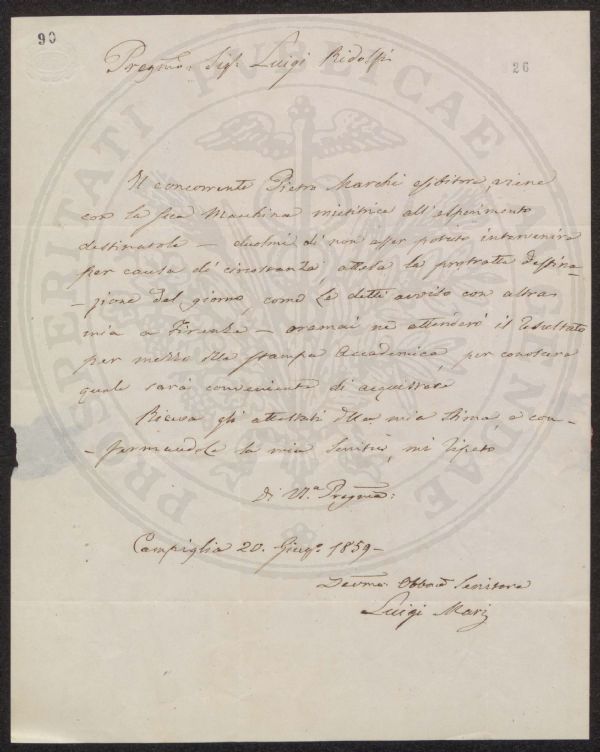 90
26
Pregmo: Sigr. Luigi Ridolfi
Il concorrente Pietro Marchi esibitore, viene
con la sua Macchina mietitrice all'esperimento
destinatole — duolmi di non esser potuto intervenire
per causa di circostanza, attesa la protratta destina-
-zione del giorno, come Le detti avviso con altra
mia a Firenze — oramai ne attenderò il resultato
per mezzo della stampa Accademica per conoscere
quale sarà conveniente di acquistare
Riceva gli attestati della mia stima, e con-
-fermandole la mia Servitù, mi ripeto
Di Va. Pregma:
Campiglia 20. Giugo. 1859 —
Devmo: Obbmo Servitore
Luigi Mari
PROSPERITATI PUBLICAE AUGENDAE